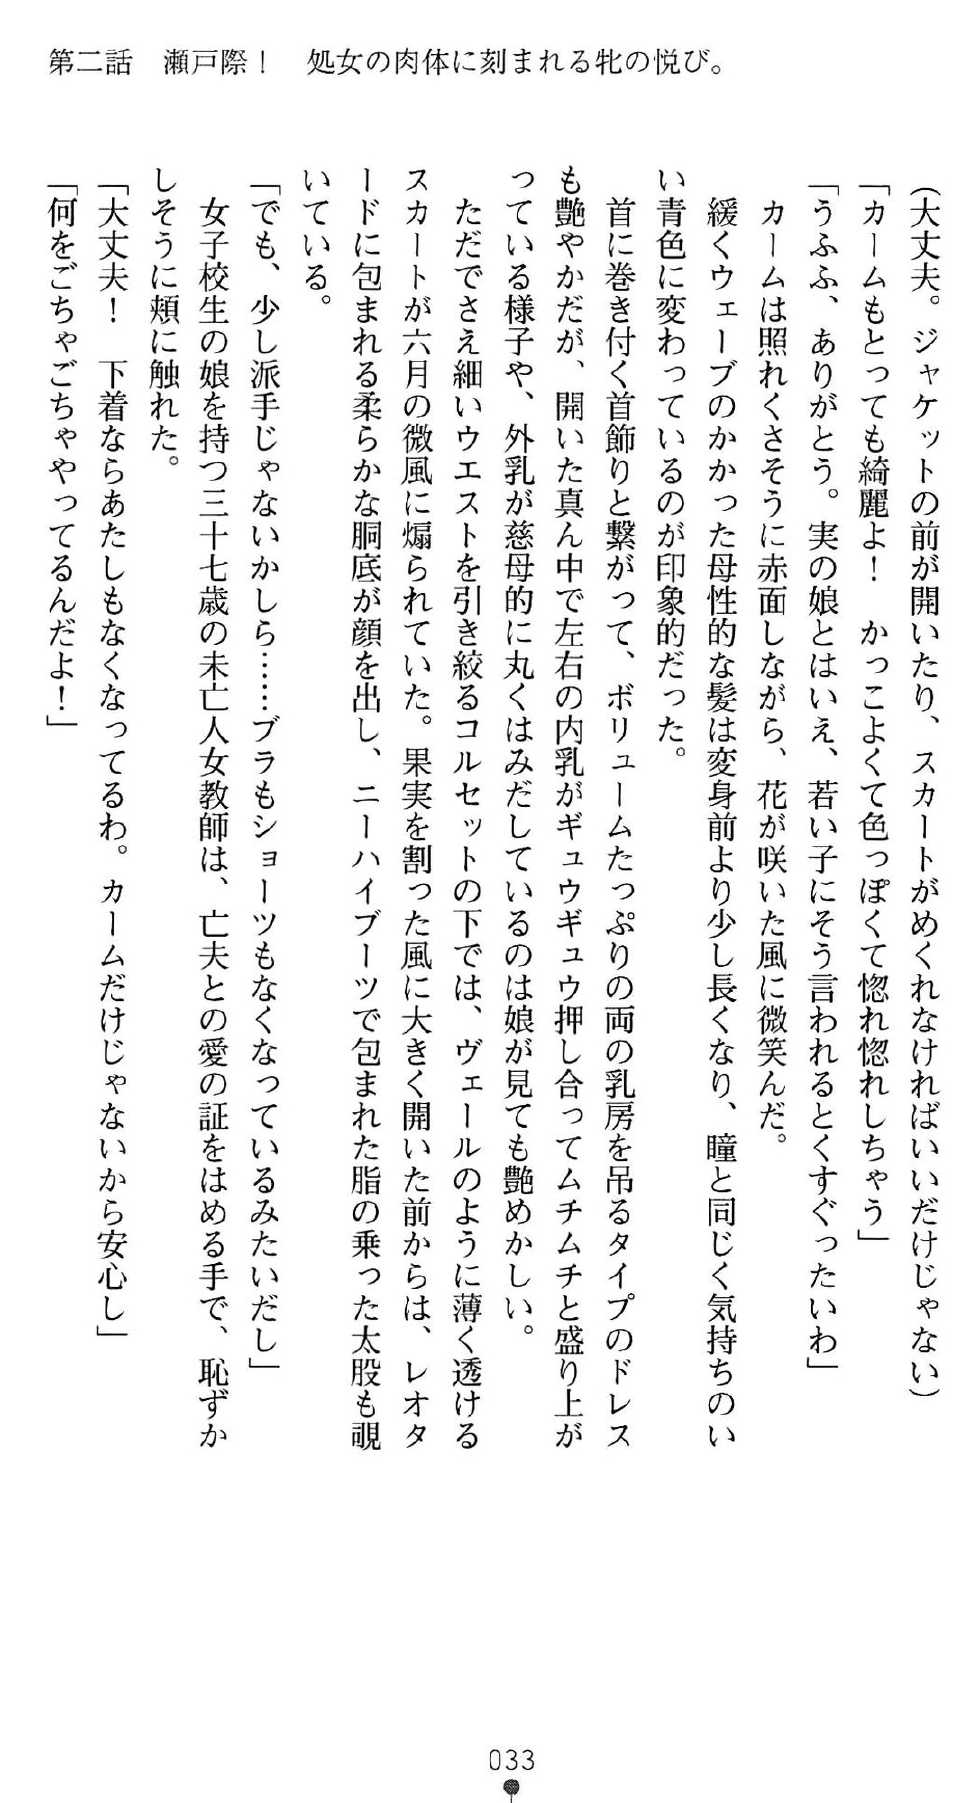 第二話　瀬戸際！　処女の肉体に刻まれる牝の悦び。
（大丈夫。ジャケットの前が開いたり、スカートがめくれなければいいだけじゃない）
「カームもとっても綺麗よ！　かっこよくて色っぽくて惚れ惚れしちゃう」
「うふふ、ありがとう。実の娘とはいえ、若い子にそう言われるとくすぐったいわ」
　カームは照れくさそうに赤面しながら、花が咲いた風に微笑んだ。
　緩くウェーブのかかった母性的な髪は変身前より少し長くなり、瞳と同じく気持ちのい
い青色に変わっているのが印象的だった。
　首に巻き付く首飾りと繋がって、ボリュームたっぷりの両の乳房を吊るタイプのドレス
も艶やかだが、開いた真ん中で左右の内乳がギュウギュウ押し合ってムチムチと盛り上が
っている様子や、外乳が慈母的に丸くはみだしているのは娘が見ても艶めかしい。
　ただでさえ細いウエストを引き絞るコルセットの下では、ヴェールのように薄く透ける
スカートが六月の微風に煽られていた。果実を割った風に大きく開いた前からは、レオタ
ードに包まれる柔らかな胴底が顔を出し、ニーハイブーツで包まれた脂の乗った太股も覗
いている。
「でも、少し派手じゃないかしら……ブラもショーツもなくなっているみたいだし」
　女子校生の娘を持つ三十七歳の未亡人女教師は、亡夫との愛の証をはめる手で、恥ずか
しそうに頬に触れた。
「大丈夫！　下着ならあたしもなくなってるわ。カームだけじゃないから安心し」
「何をごちゃごちゃやってるんだよ！」
033